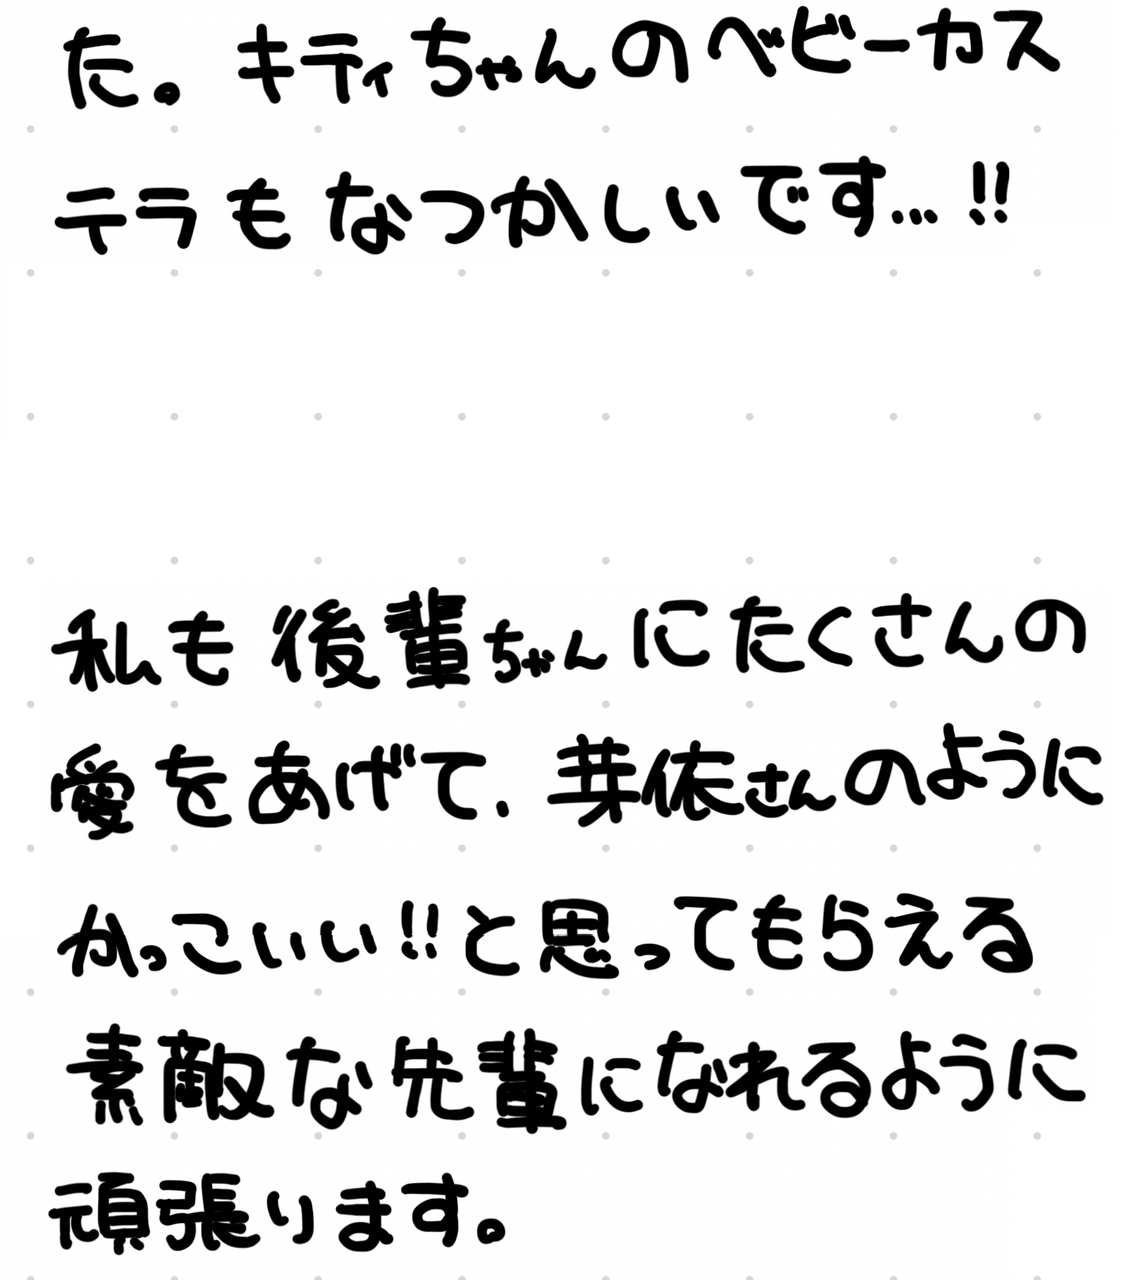 た。キティちゃんのベビーカス
テラもなつかしいです…!!
私も後輩ちゃんにたくさんの
愛をあげて、芽依さんのように
かっこいい!!と思ってもらえる
素敵な先輩になれるように
頑張ります。